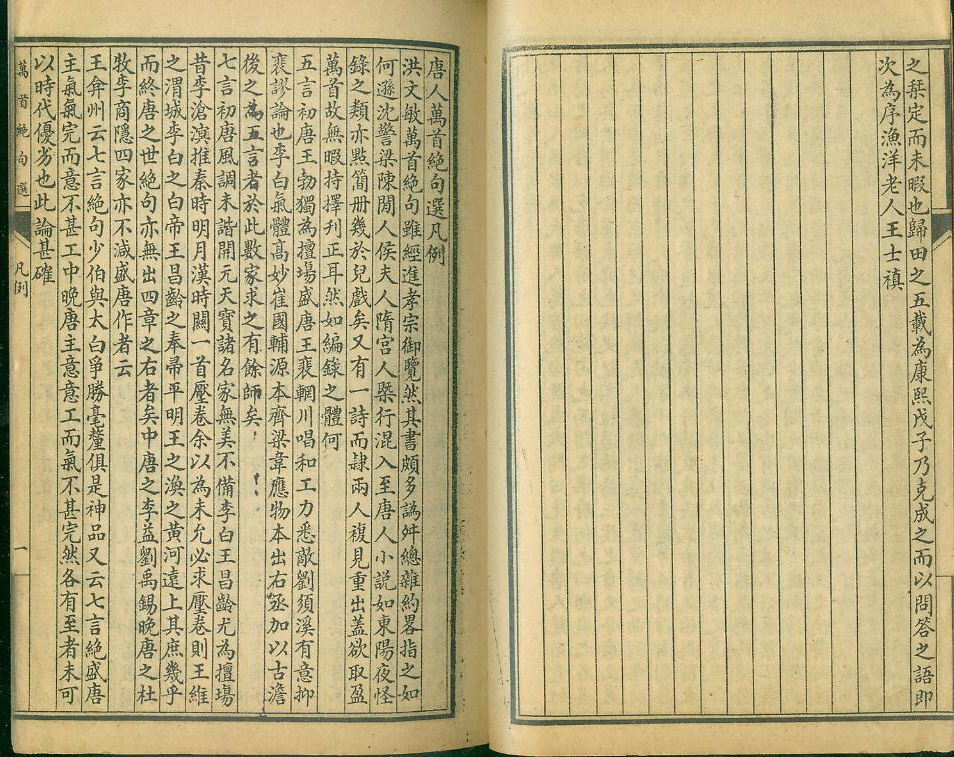 之栞定而未暇也歸田之五載為康熙戊子乃克成之而以問答之語即
次為序漁洋老人王士禛
唐人萬首絕句選凡例
洪文敏萬首絕句雖經進孝宗御覽然其書頗多譌舛總雜約畧指之如
何遜沈警梁陳閒人侯夫人隋宮人槩行混入至唐人小說如東陽夜怪
錄之類亦點簡冊幾於兒戲矣又有一詩而隷兩人複見重出蓋欲取盈
萬首故無暇持擇刋正耳然如編錄之體何
五言初唐王勃獨為擅場盛唐王裴輞川唱和工力悉敵劉須溪有意抑
裴謬論也李白氣體高妙崔國輔源本齊梁韋應物本出右丞加以古澹
後之為五言者於此數家求之有餘師矣
七言初唐風調未諧開元天寶諸名家無美不備李白王昌齡尤為擅場
昔李滄溟推秦時明月漢時關一首壓卷余以為未允必求壓卷則王維
之渭城李白之白帝王昌齡之奉帚平明王之渙之黃河遠上其庶幾乎
而終唐之世絕句亦無出四章之右者矣中唐之李益劉禹錫晚唐之杜
牧李商隱四家亦不減盛唐作者云
王弇州云七言絕句少伯與太白爭勝毫釐俱是神品又云七言絕盛唐
主氣氣完而意不甚工中晚唐主意意工而氣不甚完然各有至者未可
以時代優劣也此論甚確
萬首絕句選 凡例 一